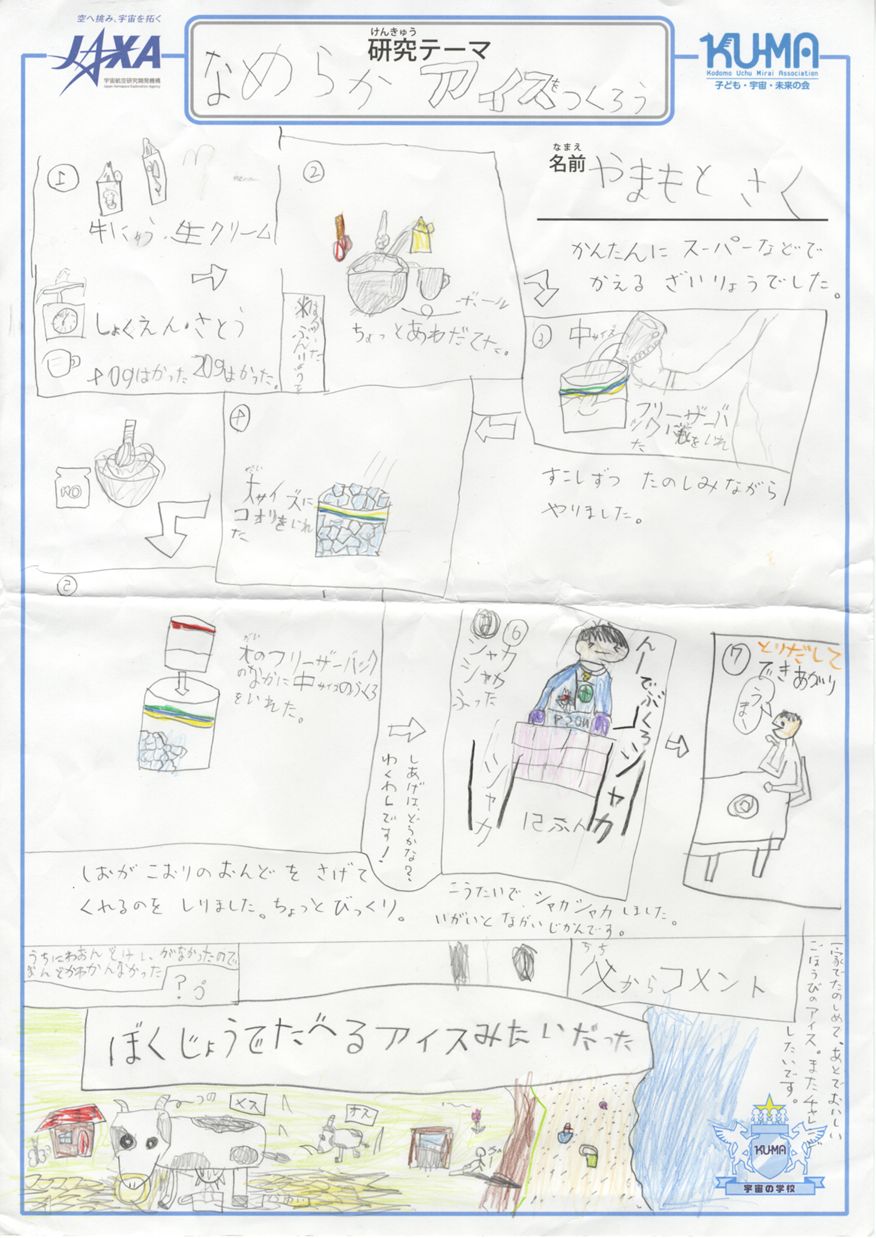 空へ挑み、宇宙を拓く
JAXA
宇宙航空研究開発機構
Japan Aerospace Exploration Agency
けんきゅう
研究テーマ
なめらかアイスをつくろう
KU-MA
Kodomo Uchu Mirai Association
子ども・宇宙・未来の会
なまえ
名前
やまもと さく
①
牛にゅう、生クリーム
しょくえん・さとう
はかった 20gはかった。
②
ボール
ちょっとあわだてた。
かんたんに スーパーなどで
かえる ざいりょうでした。
③
中サイズ
フリーザーバ
ックに
いれ
た
すこしずつ たのしみながら
やりました。
④
だい
大サイズに
コオリをいれ
た
NO
大のフリーザーバック
のなかに中サイズのふくろ
をいれた。
しあげは、どうかな?、
わくわくです!
⑥
シャカ
シャカ
ふった
んーでぶくろ
シャカ
シャカ
12ふん
⑦
とりだして
できあがり
うま
しおが こおりのおんどを さげて
くれるのを しりました。ちょっとびっくり。
こうたいで、シャカシャカしました。
いがいと ながいじかんです。
うちにわおんどけいがなかったので
おんどがわかんなかった
?
ちち
父からコメント
一家でたのしめて、あとでおいしい
ごほうびのアイス。またチャレ
したいです。
ぼくじょうでたべるアイスみたいだった
メス
オス
KU-MA
宇宙の学校